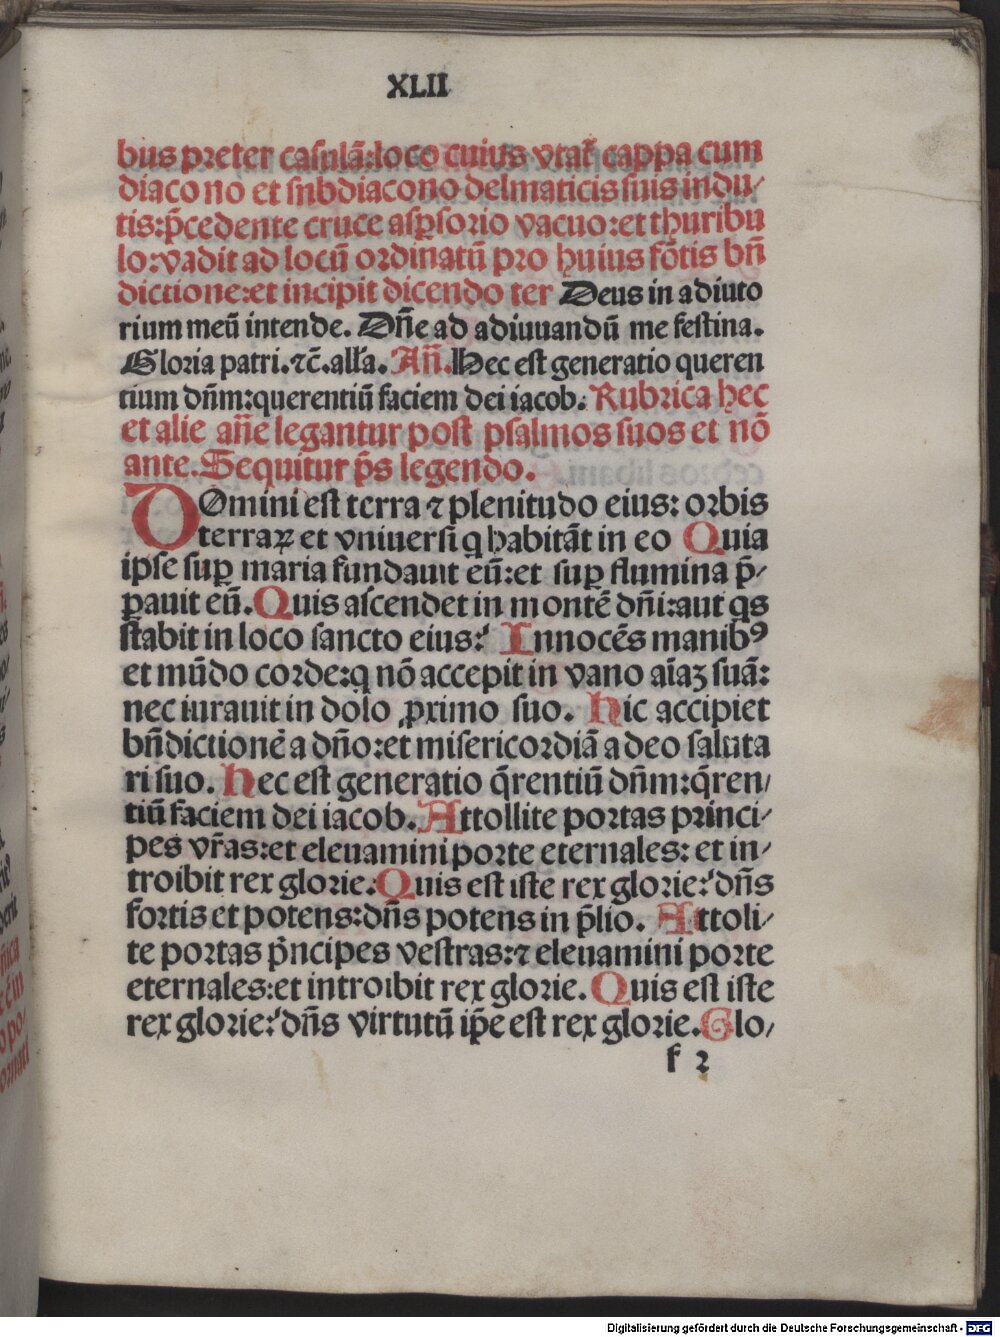 XLII
bus preter casulã:loco cuius vtat᷑ cappa cum
diaco no et snbdiacono delmaticis suis indu⸗
tis:p̃cedente cruce asꝑsorio vacuo:et thuribu
lo:vadit ad locũ ordinatũ pro huius fõtis bñ
dictione:et incipit dicendo ter Deus in adiuto
rium meũ intende. Dñe ad adiuuandũ me festina.
Gloria patri.⁊c̃. alĺa. Añ. Hec est generatio queren
tium dñm:querentiũ faciem dei iacob. Rubrica hec
et alie añe legantur post psalmos suos et nõ
ante. Sequitur p̃s legendo.
DOmini est terra ⁊ plenitudo eius: orbis
terraꝝ et vniuersi q habitãt in eo Quia
ipse suꝑ maria fundauit eũ:et suꝑ flumina p̃⸗
ꝑauit eũ. Quis ascendet in montẽ dñi:aut qs
stabit in loco sancto eius? Innocẽs manibꝰ
et mũdo corde:q nõ accepit in vano aĩaꝫ suã:
nec iurauit in dolo ꝓximo suo. Hic accipiet
bñdictionẽ a dño:et misericordiã a deo saluta
ri suo. Hec est generatio q̃rentiũ dñm:q̃ren⸗
tiũ faciem dei iacob. Attollite portas princi⸗
pes vr̃as:et eleuamini porte eternales: et in⸗
troibit rex glorie. Quis est iste rex glorie? dñs
fortis et potens:dñs potens in p̃lio. Attoli⸗
te portas p̃ncipes vestras:⁊ eleuamini porte
eternales:et introibit rex glorie. Quis est iste
rex glorie? dñs virtutũ ip̃e est rex glorie. Glo⸗
f 2
Digitalisierung gefördert durch die Deutsche Forschungsgemeinschaft - DFG